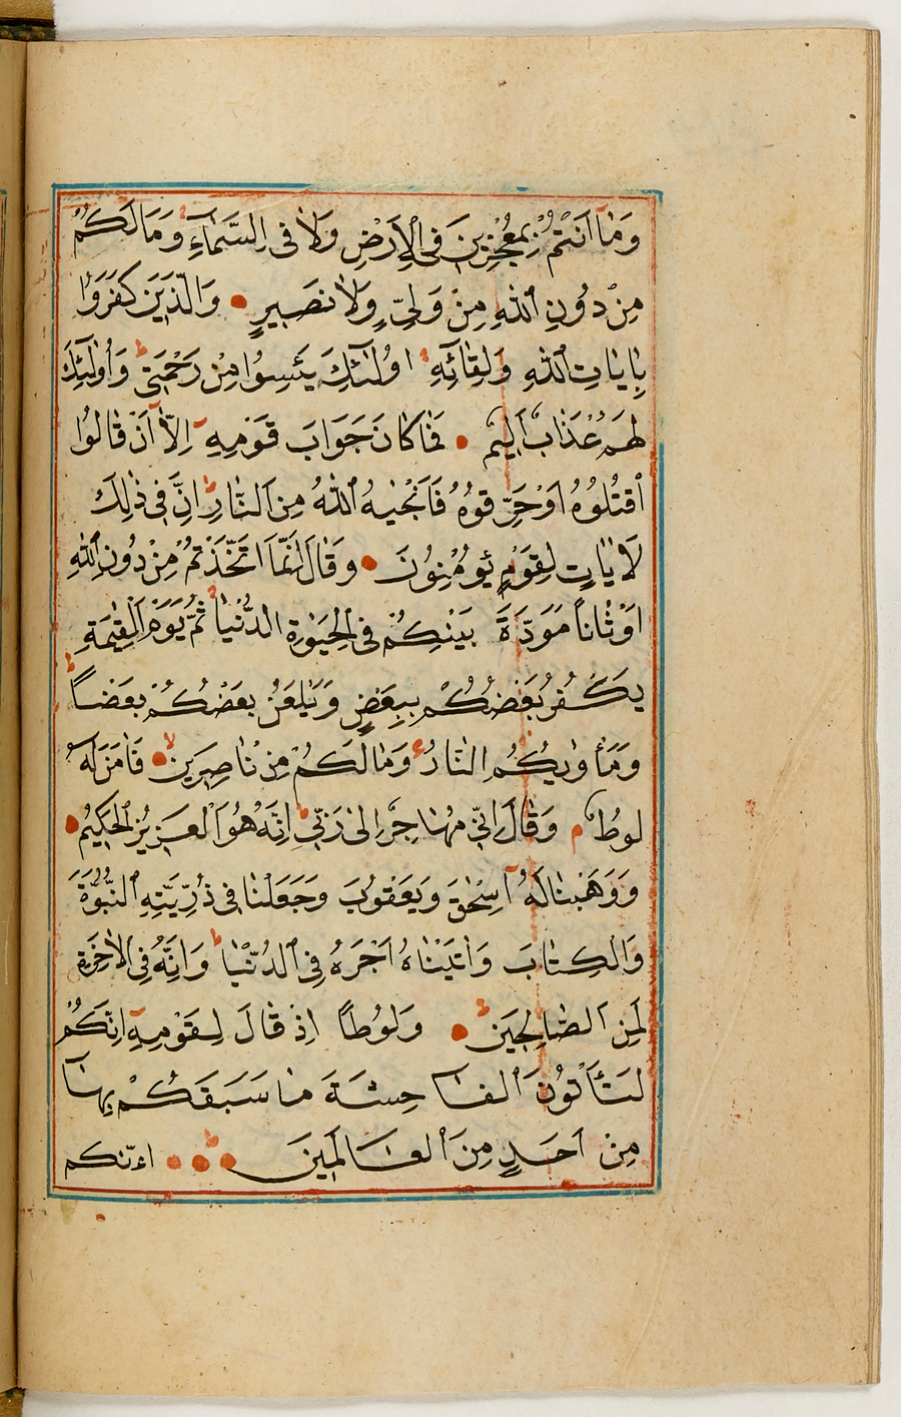 وَمَٓا اَنْتُمْ بِمُعْجِزِينَ فِى الْاَرْضِ وَلَا فِى السَّمَٓاءِ وَمَا لَكُمْ
مِنْ دُونِ اللّٰهِ مِنْ وَلِىٍّ وَلَا نَصِيرٍ وَالَّذِينَ كَفَرُوا
بِاٰيَاتِ اللّٰهِ وَلِقَٓائِهِ اُولٰٓئِكَ يَئِسُوا مِنْ رَحْمَتِى وَاُولٰٓئِكَ
لَهُمْ عَذَابٌ اَلِيمٌ فَمَا كَانَ جَوَابَ قَوْمِهِٓ اِلَّٓا اَنْ قَالُوا
اقْتُلُوهُ اَوْ حَرِّقُوهُ فَاَنْجٰيهُ اللّٰهُ مِنَ النَّارِ اِنَّ فِى ذٰلِكَ
لَاٰيَاتٍ لِقَوْمٍ يُؤْمِنُونَ وَقَالَ اِنَّمَا اتَّخَذْتُمْ مِنْ دُونِ اللّٰهِ
اَوْثَانًا مَوَدَّةَ بَيْنِكُمْ فِى الْحَيٰوةِ الدُّنْيَا ثُمَّ يَوْمَ الْقِيٰمَةِ
يَكْفُرُ بَعْضُكُمْ بِبَعْضٍ وَيَلْعَنُ بَعْضُكُمْ بَعْضًا
وَمَأْوٰيكُمُ النَّارُ وَمَا لَكُمْ مِنْ نَاصِرِينَ فَاٰمَنَ لَهُ
لُوطٌ م وَقَالَ اِنِّى مُهَاجِرٌ اِلٰى رَبِّى اِنَّهُ هُوَ الْعَزِيزُ الْحَكِيمُ
وَوَهَبْنَا لَهُٓ اِسْحٰقَ وَيَعْقُوبَ وَجَعَلْنَا فِى ذُرِّيَّتِهِ النُّبُوَّةَ
وَالْكِتَابَ وَاٰتَيْنَاهُ اَجْرَهُ فِى الدُّنْيَا وَاِنَّهُ فِى الْاٰخِرَةِ
لَمِنَ الصَّالِحِينَ وَلُوطًا اِذْ قَالَ لِقَوْمِهِٓ اِنَّكُمْ
لَتَأْتُونَ الْفَاحِشَةَ مَا سَبَقَكُمْ بِهَا
مِنْ اَحَدٍ مِنَ الْعَالَمِينَ
اءنّكم